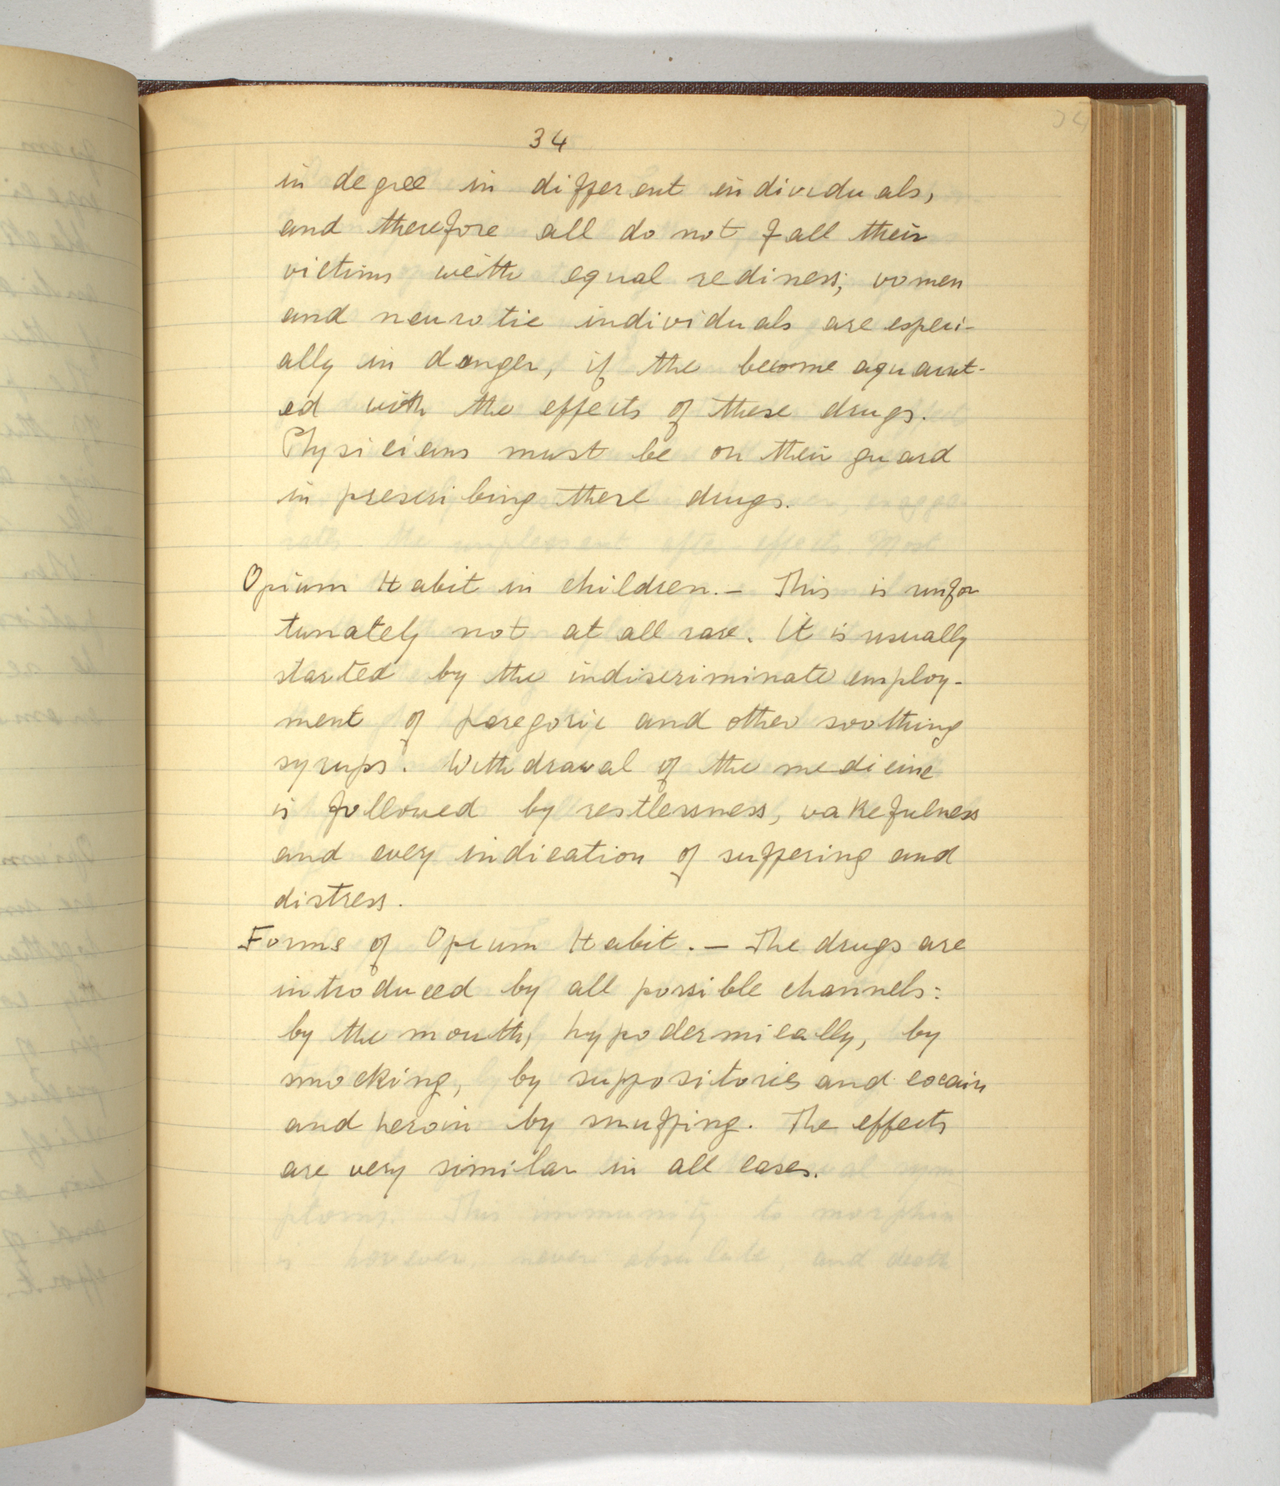 34
in degree in different individuals,
and therefore all do not fall their
victims with equal rediness; women
and neurotic individuals are especi-
ally in danger, if the become aquaint-
ed with the effects of these drugs.
Physicians must be on their guard
in prescribing these drugs.
Opium Habit in children.— This is unfor
tunately not at all rare. It is usually
started by the indiscriminate employ-
ment of paregoric and other soothing
syrups. Withdrawal of the medicine
is followed by restlessness, wakefulness
and every indication of suffering and
distress.
Forms of Opium Habit.— The drugs are
introduced by all possible channels:
by the mouth, hypodermically, by
smocking, by suppositories and cocain
and heroin by snuffing. The effects
are very similar in all cases.